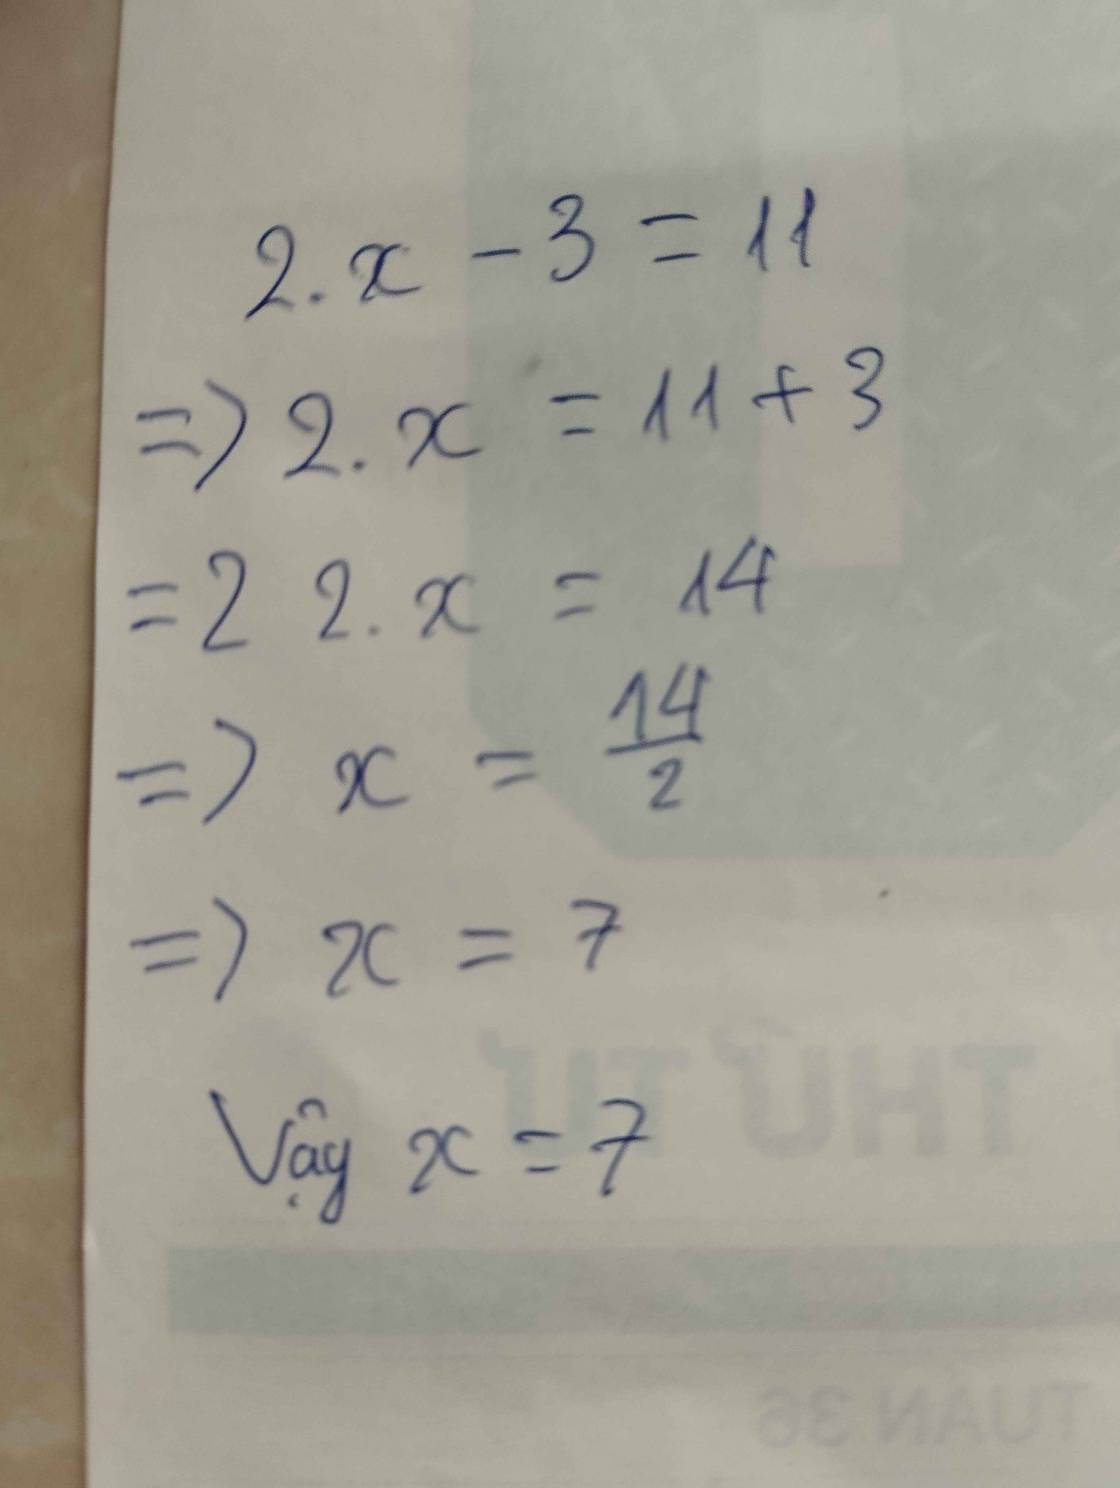 2.x - 3 = 11
=> 2.x = 11 + 3
=2 2.x = 14
=> x = 14/2
=> x = 7
Vậy x = 7
THỨ TƯ
TUẦN 36